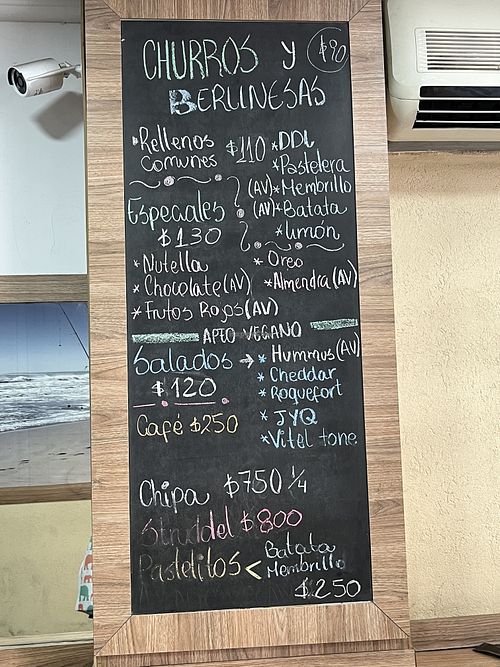 CHURROS y $90
BERLINESAS
*Rellenos Comunes $110
*DDL
*Pastelera
(AV)*Membrillo
(AV)*Batata
*Limón
Especiales
$130
*Nutella
*Chocolate(AV)
*Frutos Rojos(AV)
*Oreo
*Almendra(AV)
APTO VEGANO
Salados →
$120
*Hummus(AV)
*Cheddar
*Roquefort
*JYQ
*Vitel tone
Café $250
Chipa $750 1/4
Struddel $800
Pastelitos < Batata
Membrillo
$250